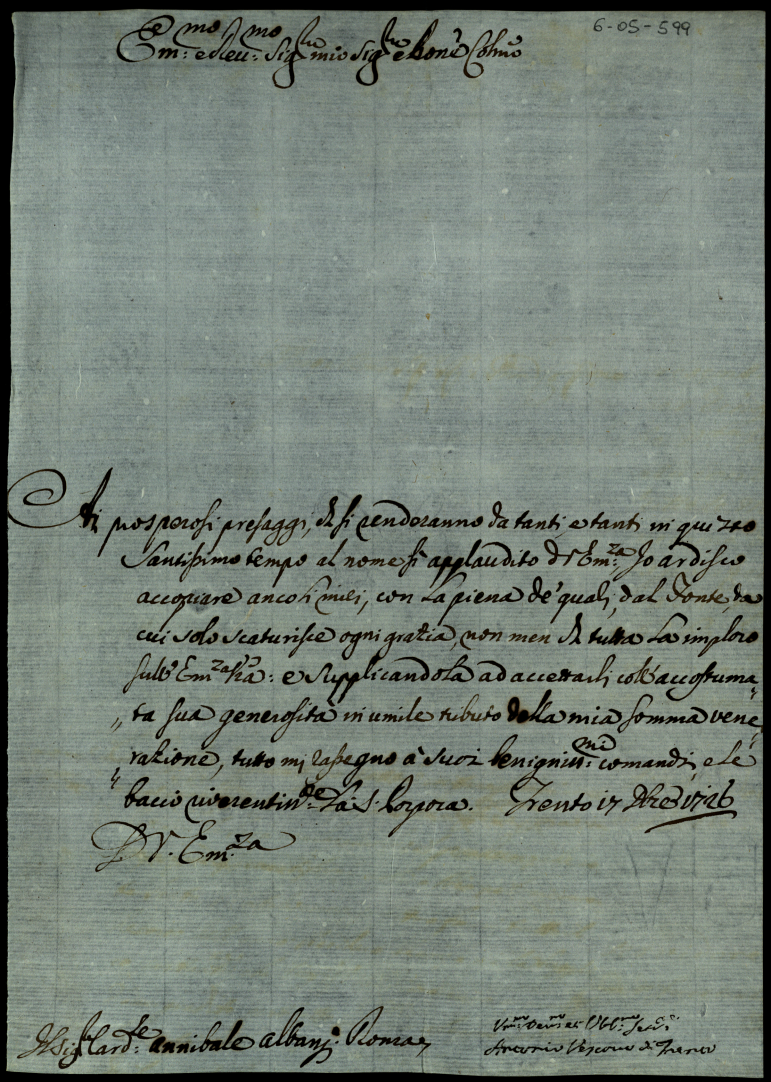 6-05-599
Em:mo e Reu:mo Sig:re mio Sig:re e Pone Colmo
Ai prosperosi presaggi, ch si renderanno da tanti, e tanti in questo
Santissimo tempo al nome sì applaudito di V Em:za Io ardisco
accopiare anco li miei, con la piena de' quali, dal Fonte, da
cui solo scaturisce ogni gratia, non men ch tutta la imploro
sull' Em:za Vra: e supplicandola ad accettarli coll' accostuma„
„ta sua generosità in umile tributo della mia somma vene„
„razione, tutto mi rassegno à suoi benigniss:mi comandi, e le
bacio riverentem:te la S. Porpora. Trento 17 Xbre 1726
Di V. Em:za
Al Sig:r Card:le Annibale Albani. Roma
Um:mo Deu:mo et Obl:mo
Antonio Vescouo di Trento